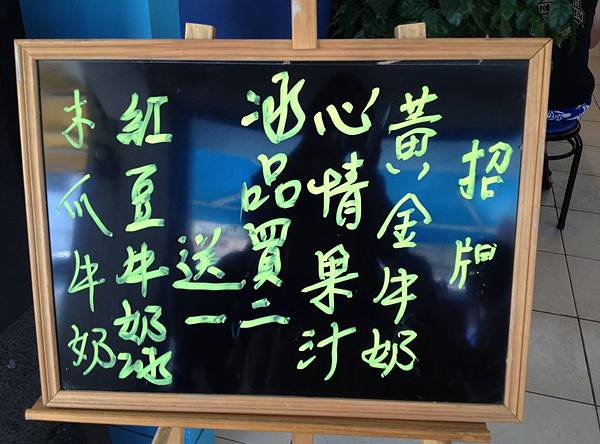 招牌
黃金牛奶
心情果汁
冰品買二
送一
紅豆牛奶冰
木瓜牛奶